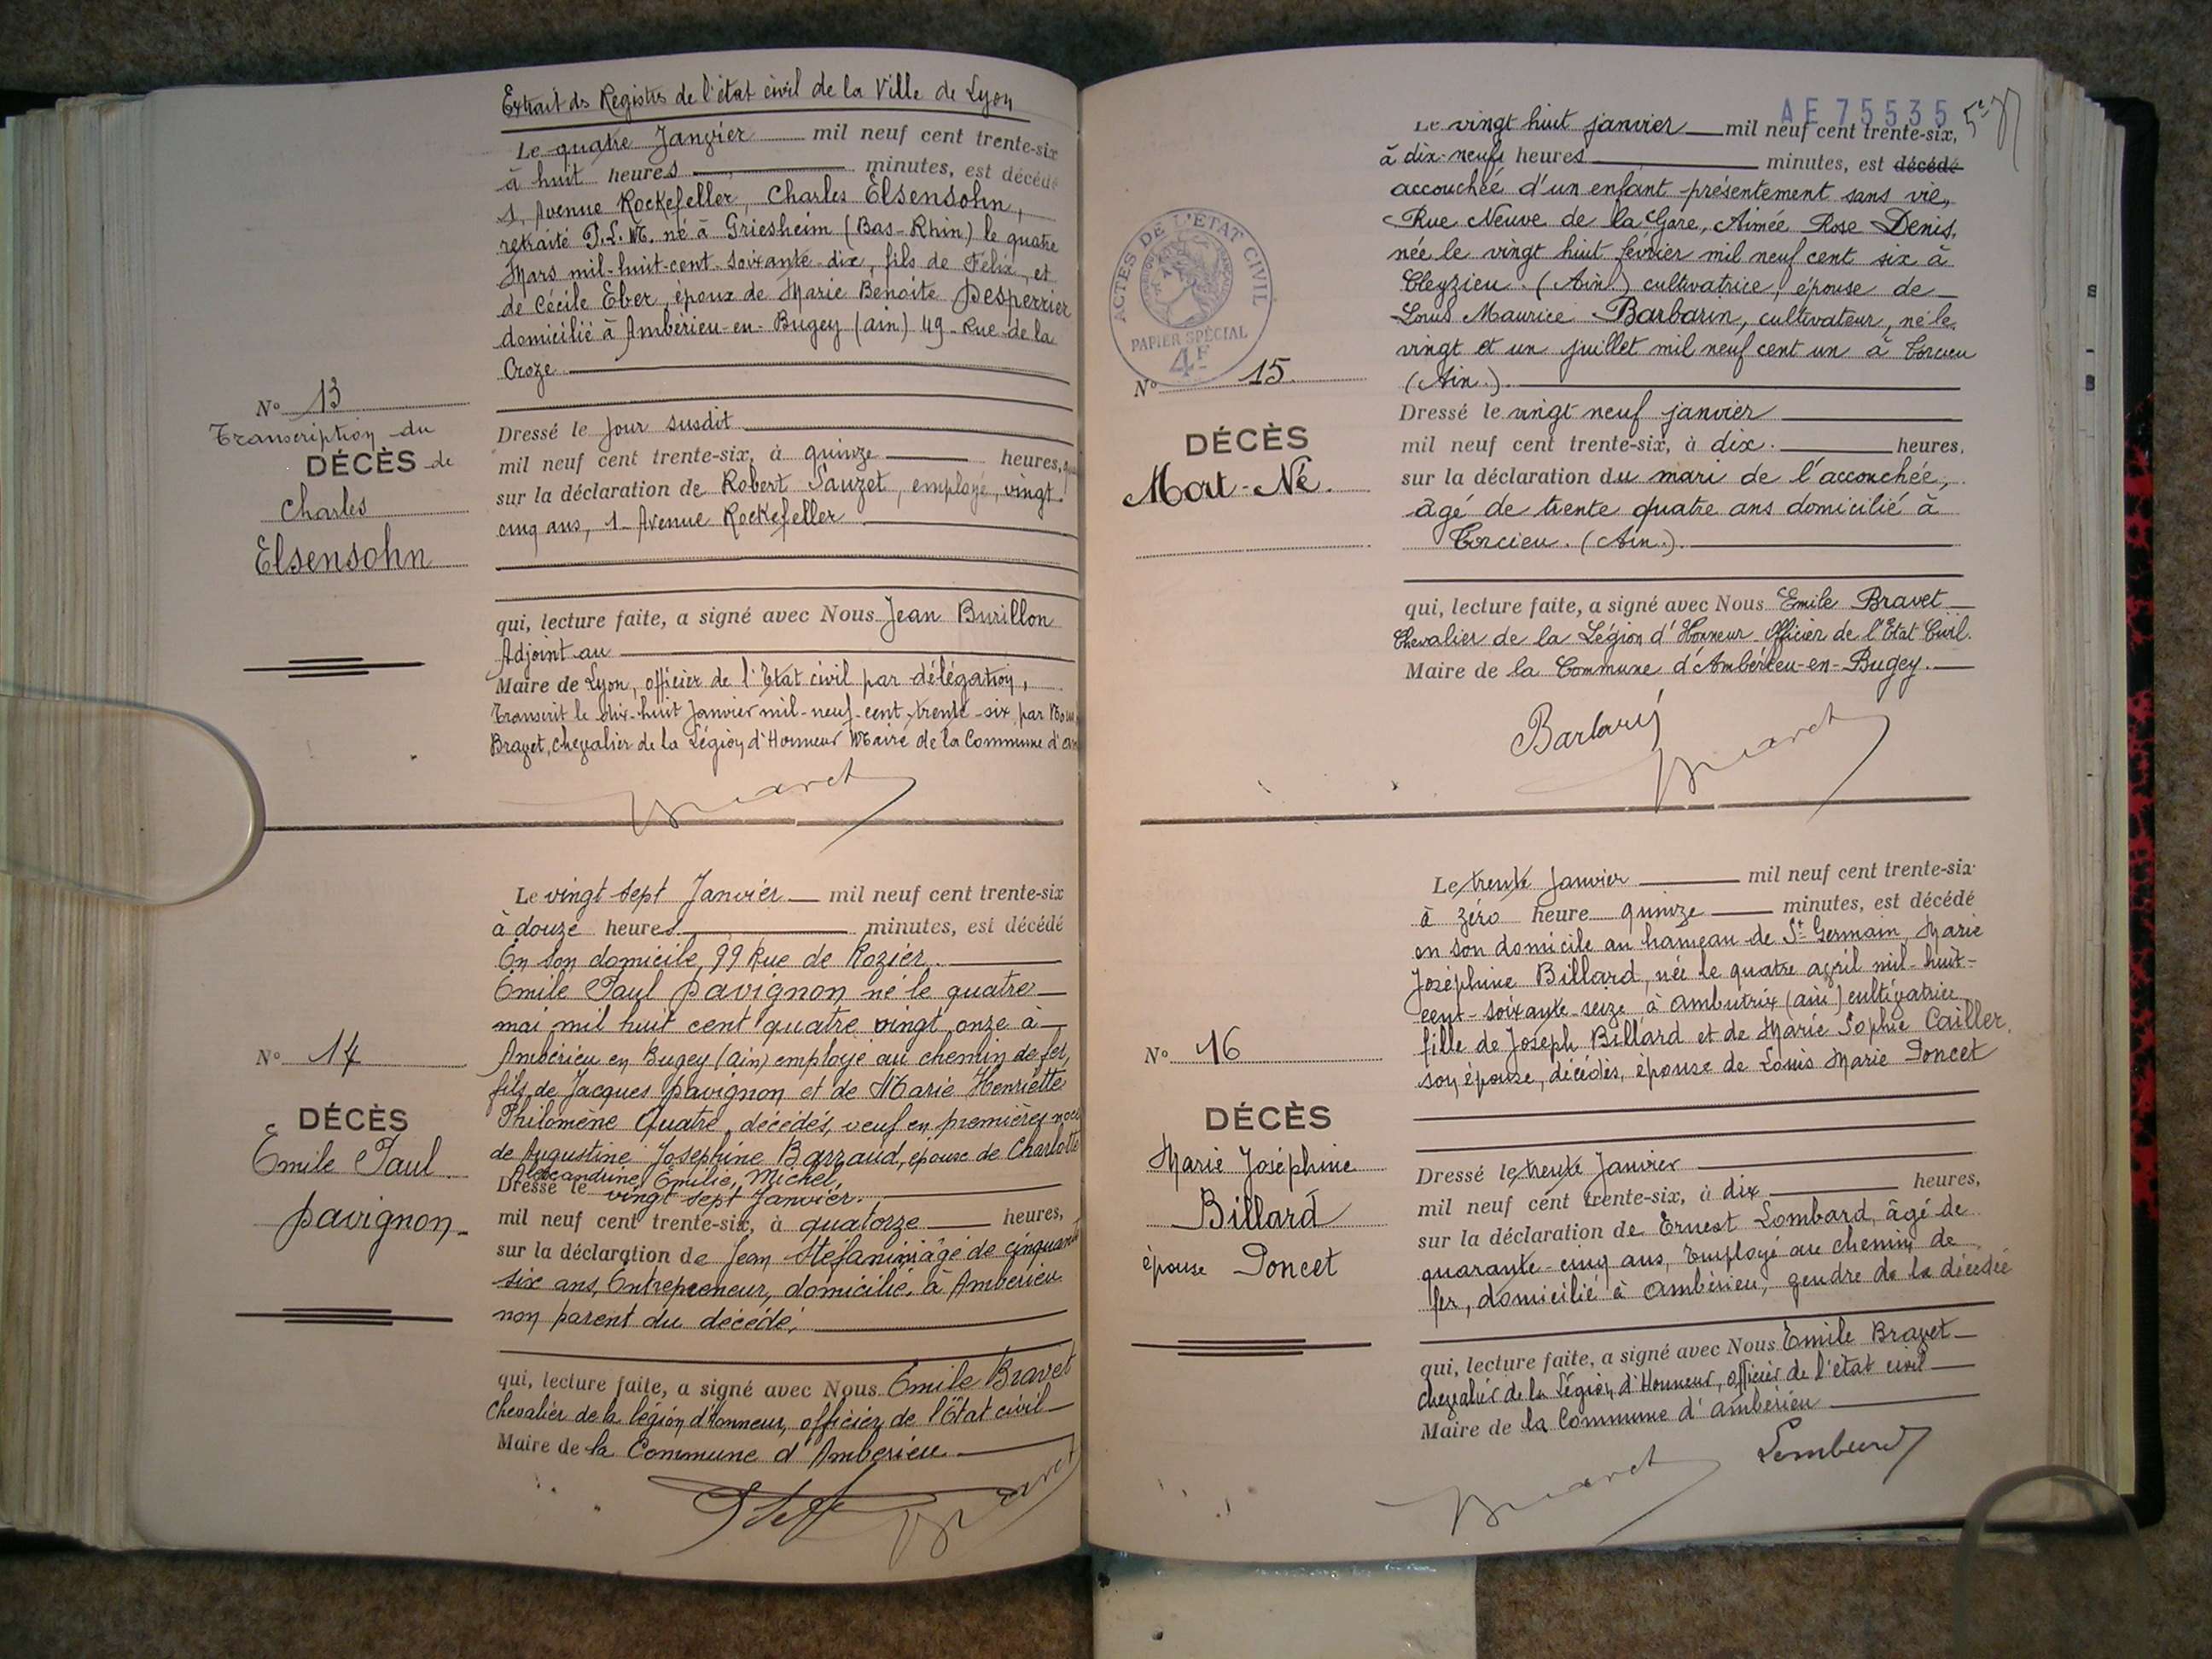 Extrait ds Registres de l'état civil de la Ville de Lyon
Le quatre Janvier mil neuf cent trente-six
à huit heures minutes, est décédé
1, Avenue Rockefeller, Charles Elsensohn,
retraité P.L.M. né à Griesheim (Bas-Rhin) le quatre
Mars mil-huit-cent-soixante-dix, fils de Félix, et
de Cécile Eber, époux de Marie Benoite Desperrier
domicilié à Ambérieu-en-Bugey (ain) 49-Rue-de-la
Croze
N° 13
Transcription du
DÉCÈS de
Charles
Elsensohn
Dressé le jour susdit
mil neuf cent trente-six, à quinze heures,
sur la déclaration de Robert Sauzet, employé, vingt
cinq ans, 1-Avenue Rockefeller
qui, lecture faite, a signé avec Nous Jean Burillon
Adjoint au
Maire de Lyon, officier de l'Etat civil par délégation,
Transcrit le dix-huit Janvier mil-neuf-cent-trente-six, par Nous
Bravet, chevalier de la Légion d'Honneur Maire de la Commune d'am
Bravet
Le vingt sept Janvier mil neuf cent trente-six
à douze heures minutes, est décédé
En son domicile, 99 Rue de Rozier.
Emile Paul pavignon né le quatre
mai mil huit cent quatre vingt onze à
Ambérieu en Bugey (ain) employé au chemin de fer,
fils de Jacques pavignon et de Marie Henriette
Philomène Quatre, décédés, veuf en premières noces
de Augustine Joséphine Barraud, épouse de Charlotte
Alexandrine, Emilie, Michel,
N° 14
DÉCÈS
Emile Paul
pavignon
Dressé le vingt sept Janvier.
mil neuf cent trente-six, à quatorze heures,
sur la déclaration de Jean Stéfanini âgé de cinquante
six ans, Entrepreneur, domicilié, à Ambérieu
non parent du décédé,
qui, lecture faite, a signé avec Nous Emile Bravet
Chevalier de la légion d'honneur, officier de l'État civil
Maire de la Commune d'Ambérieu
Steff Bravet
AE 75535
5e
Le vingt huit janvier mil neuf cent trente-six,
à dix-neuf heures minutes, est décédé
accouchée d'un enfant présentement sans vie,
Rue Neuve de la Gare, Aimée Rose Denis,
née le vingt huit février mil neuf cent six à
Cleyzieu. (Ain.) cultivatrice, épouse de
Louis Maurice Barbarin, cultivateur, né le
vingt et un juillet mil neuf cent un à Torcieu
(Ain.).
ACTES DE L'ETAT CIVIL
PAPIER SPÉCIAL
4F
N° 15.
DÉCÈS
Mort-Né.
Dressé le vingt neuf janvier
mil neuf cent trente-six, à dix. heures,
sur la déclaration du mari de l'accouchée,
âgé de trente quatre ans domicilié à
Torcieu. (Ain.).
qui, lecture faite, a signé avec Nous Emile Bravet
Chevalier de la Légion d'Honneur Officier de l'Etat Civil.
Maire de la Commune d'Ambérieu-en-Bugey.
Barbarin
Bravet
Le trente Janvier mil neuf cent trente-six
à zéro heure quinze minutes, est décédé
en son domicile au hameau de St Germain, Marie
Joséphine Billard, née le quatre avril mil-huit-
cent-soixante-seize à ambutrix (ain) cultivatrice
fille de Joseph Billard et de Marie Sophie Cailler,
son épouse, décédés, épouse de Louis Marie Poncet
N° 16
DÉCÈS
Marie Joséphine
Billard
épouse Poncet
Dressé le trente Janvier
mil neuf cent trente-six, à dix heures,
sur la déclaration de Ernest Lombard, âgé de
quarante-cinq ans, Employé au chemin de
fer, domicilié à ambérieu, gendre de la décédée
qui, lecture faite, a signé avec Nous Emile Bravet
chevalier de la Légion d'Honneur, officier de l'état civil
Maire de la Commune d'ambérieu
Bravet Lombard